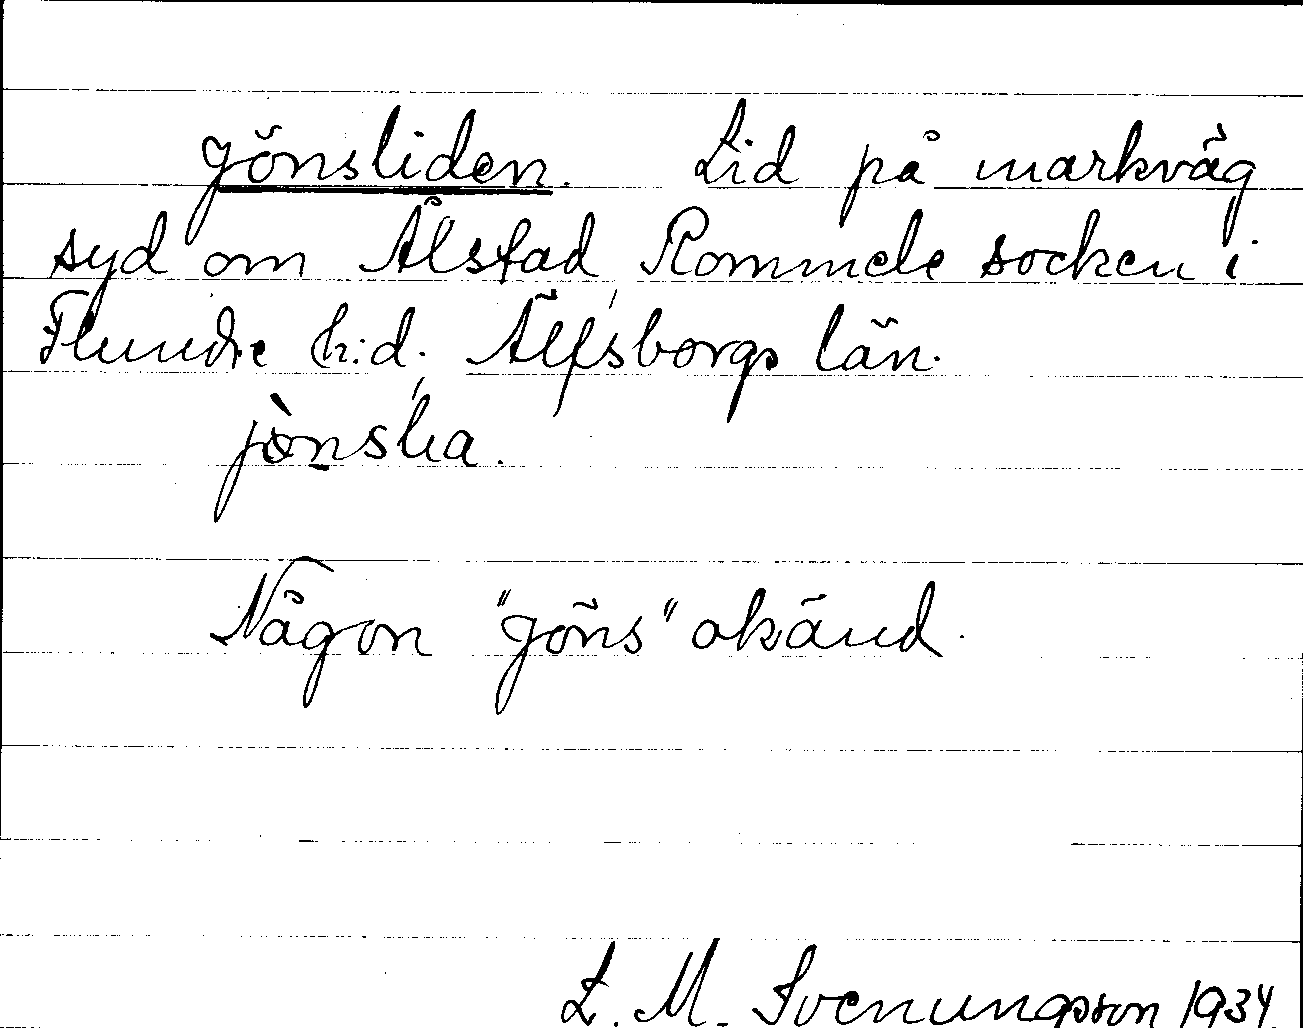 Jönsliden. Lid på markväg
syd om Ålstad, Rommele socken i
Flundre h:d, Älfsborgs län.
jönslia.
Någon "Jöns" okänd.
L. M. Svenungsson 1934.